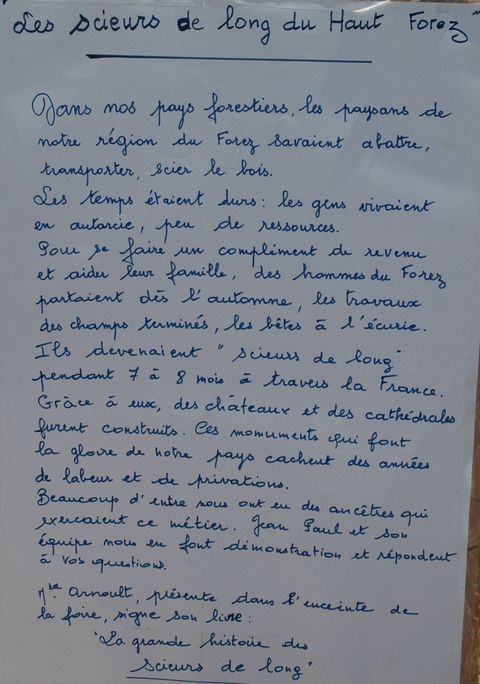 "Les scieurs de long du Haut Forez"
Dans nos pays forestiers, les paysans de
notre région du Forez savaient abattre,
transporter, scier le bois.
Les temps étaient durs : les gens vivaient
en autarcie, peu de ressources.
Pour se faire un complément de revenu
et aider leur famille, des hommes du Forez
partaient dès l'automne, les travaux
des champs terminés, les bêtes à l'écurie.
Ils devenaient "scieurs de long"
pendant 7 à 8 mois à travers la France.
Grâce à eux, des châteaux et des cathédrales
furent construits. Ces monuments qui font
la gloire de notre pays cachent des années
de labeur et de privations.
Beaucoup d'entre nous ont eu des ancêtres qui
exercaient ce métier. Jean Paul et son
équipe nous en font démonstration et répondent
à vos questions.
Arnoult, présente dans l'enceinte de
la foire, signe son livre :
"La grande histoire des
scieurs de long"